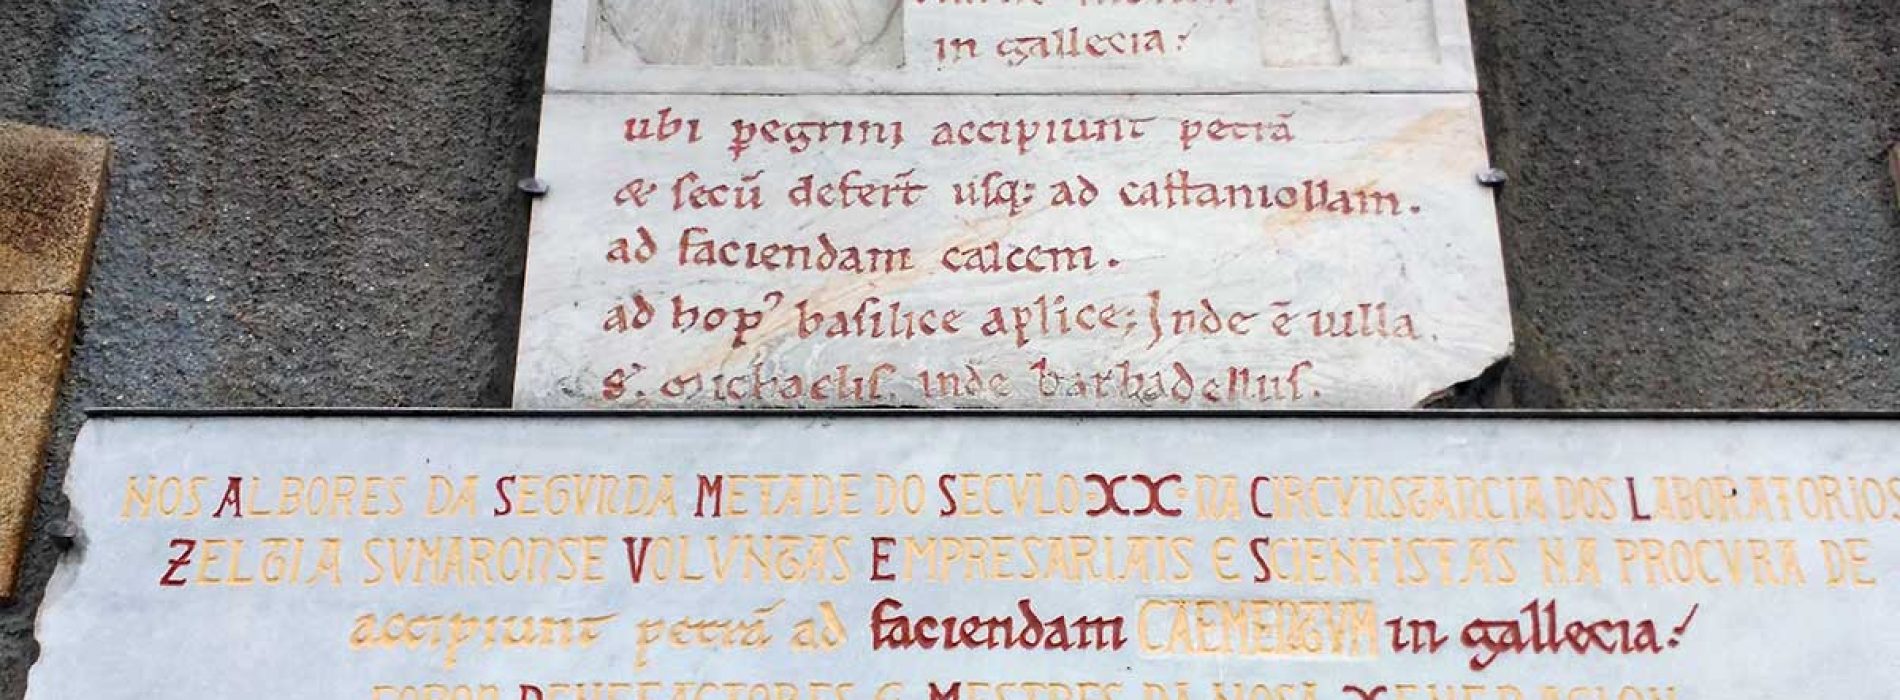 in gallecia!
ubi p̱egrini accipiunt petrā
& secū defert̄ usq; ad castaniollam.
ad faciendam calcem.
ad hop' basilice aplice; Inde ē uilla
s. michaelis. inde barbadellus.
NOS ALBORES DA SEGVNDA METADE DO SECVLO·XX·NA CIRCVNSTANCIA DOS LABORATORIOS
ZELTIA SVMARONSE VOLVNTAS EMPRESARIAIS E SCIENTISTAS NA PROCVRA DE
accipiunt petrā ad faciendam CAEMENTVM in gallecia!
BENEFACTORES E MESTRES DA NOSA XENERACION